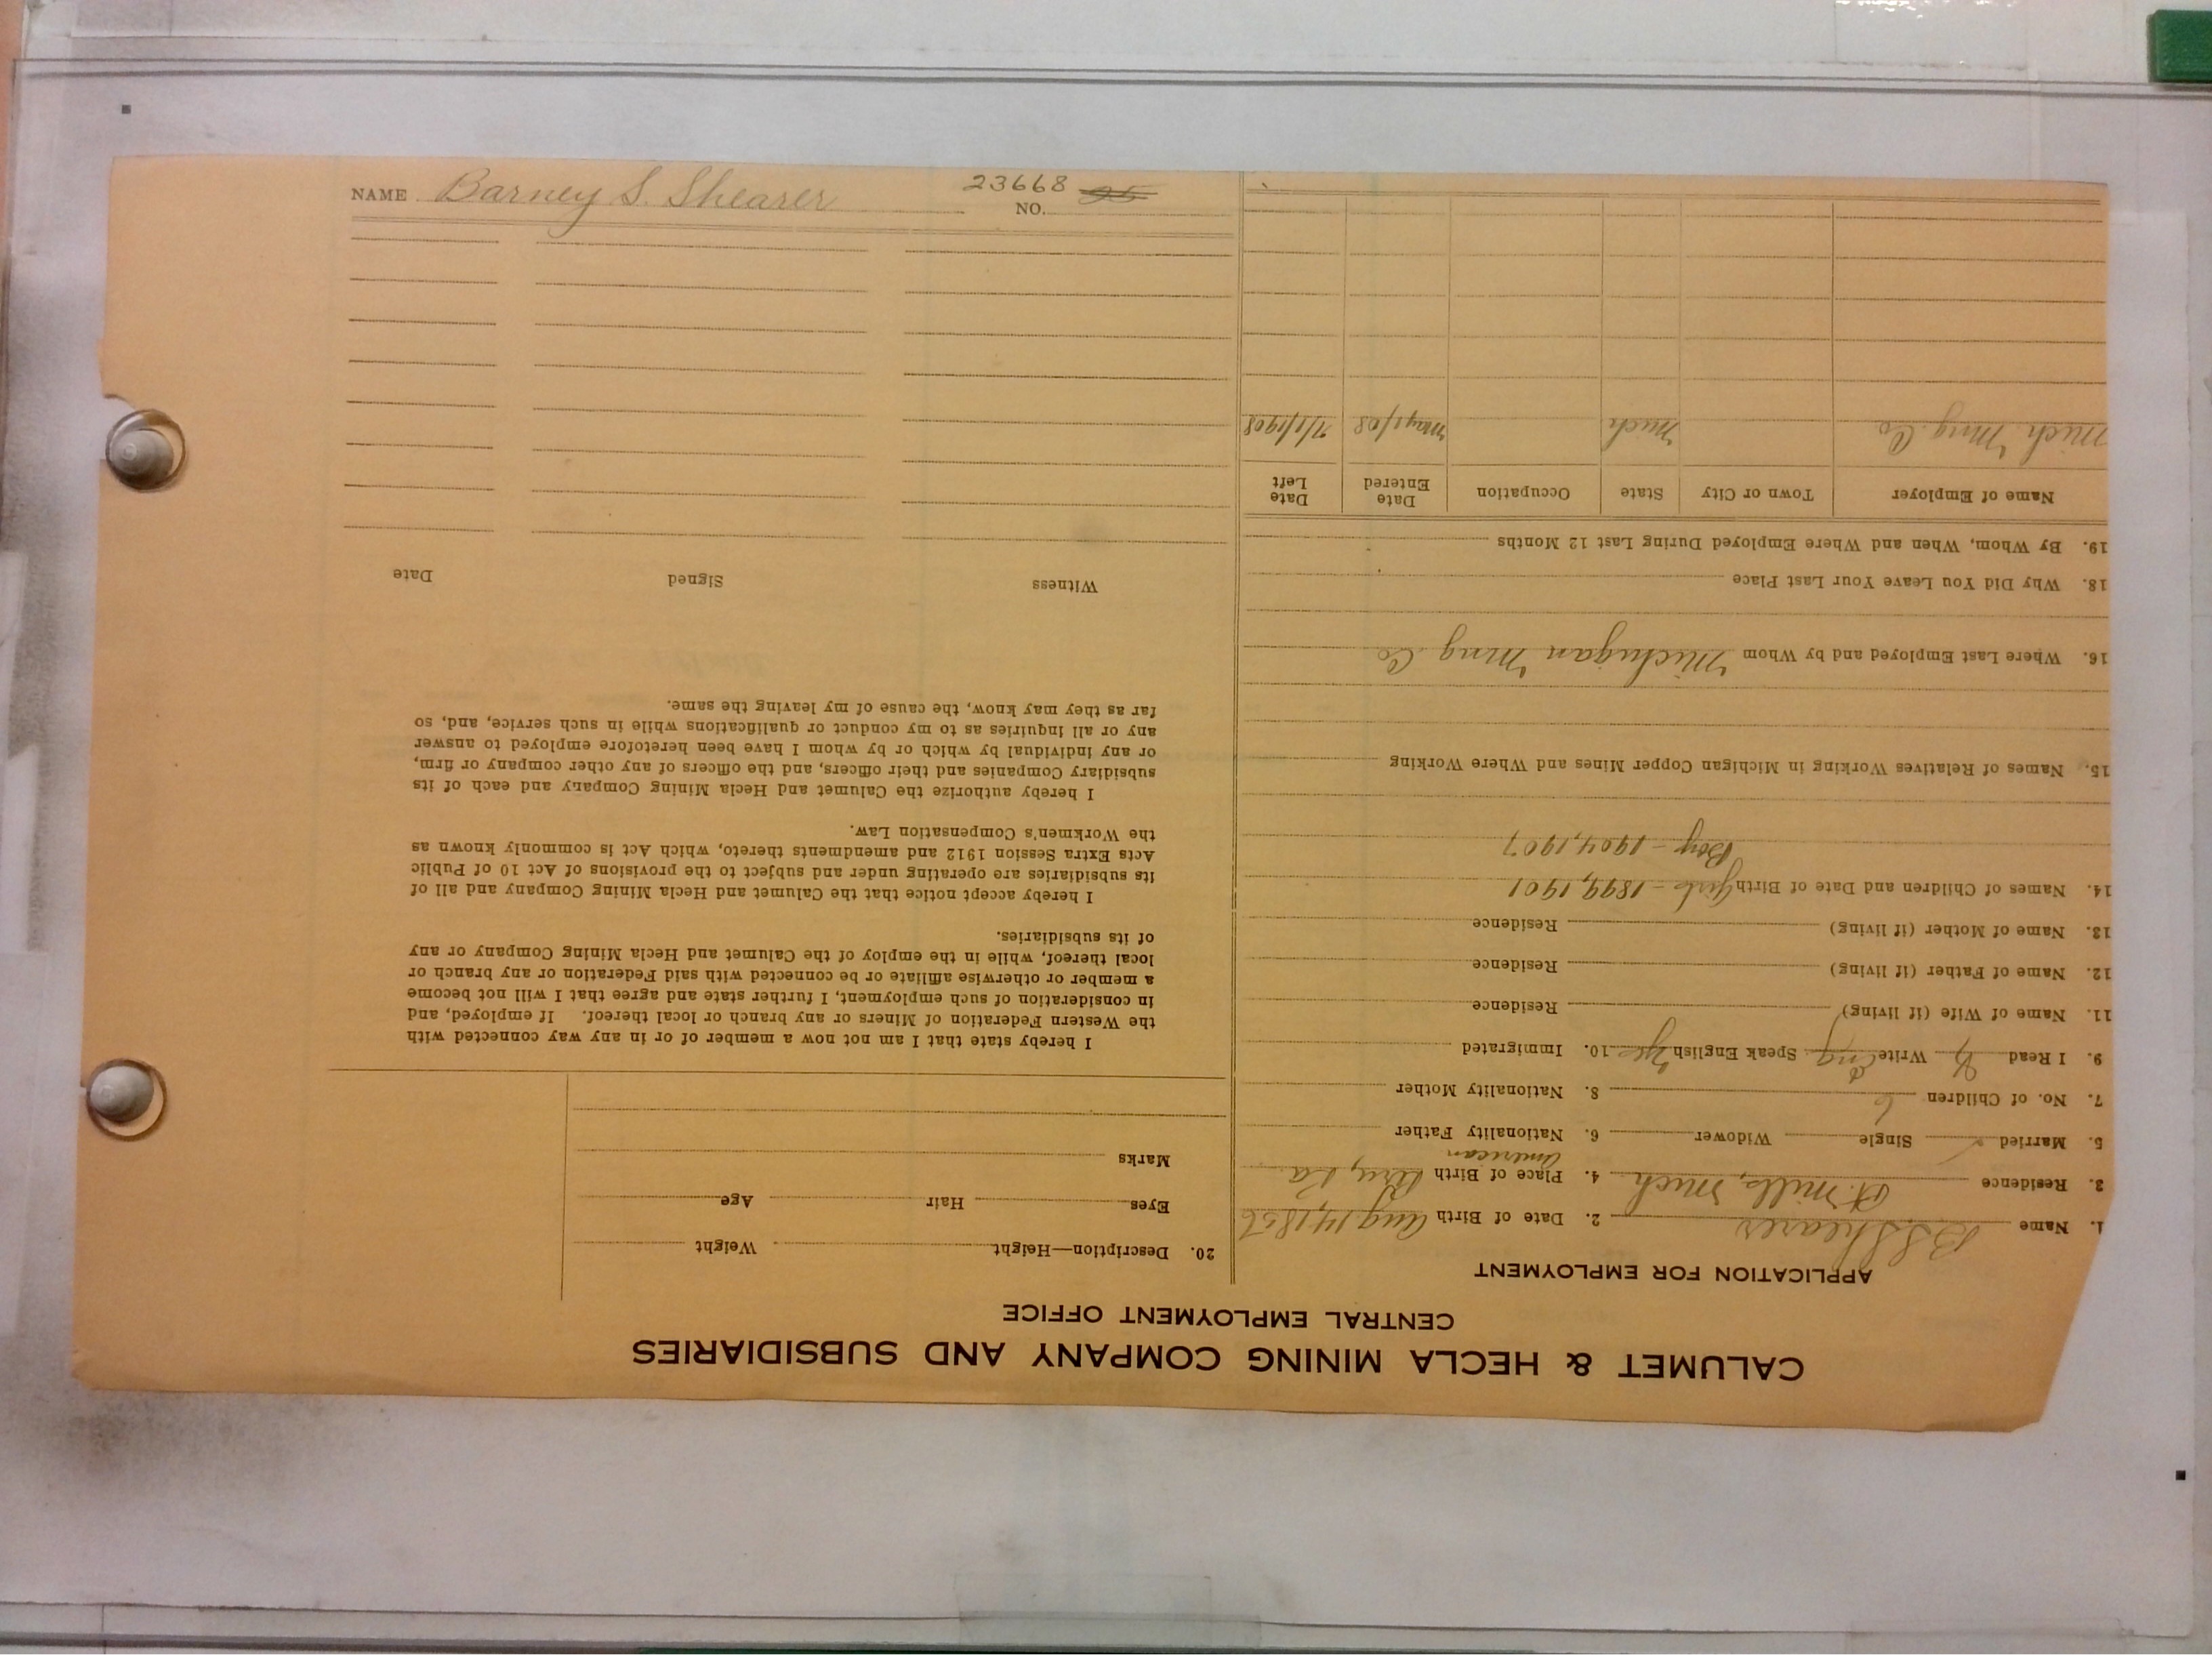 NAME Barney S. Shearer NO. 23668
CALUMET & HECLA MINING COMPANY AND SUBSIDIARIES
CENTRAL EMPLOYMENT OFFICE
APPLICATION FOR EMPLOYMENT
1. Name B. S. Shearer 2. Date of Birth Aug 14, 1856
3. Residence Pt. Mills, Mich 4. Place of Birth Pa
American
5. Married Single Widower 6. Nationality Father
7. No. of Children 6 8. Nationality Mother
9. I Read Write Eng Speak English Yes 10. Immigrated
11. Name of Wife (if living) Residence
12. Name of Father (if living) Residence
13. Name of Mother (if living) Residence
14. Names of Children and Date of Birth Girls - 1899, 1901
Boy - 1904, 1907
15. Names of Relatives Working in Michigan Copper Mines and Where Working
16. Where Last Employed and by Whom Michigan Mng. Co
18. Why Did You Leave Your Last Place
19. By Whom, When and Where Employed During Last 12 Months
Name of Employer Town or City State Occupation Date Entered Date Left
Mich. Mng. Co Mich May 1/08 7/1/1908
20. Description—Height Weight
Eyes Hair Age
Marks
I hereby state that I am not now a member of or in any way connected with
the Western Federation of Miners or any branch or local thereof. If employed, and
in consideration of such employment, I further state and agree that I will not become
a member or otherwise affiliate or be connected with said Federation or any branch or
local thereof, while in the employ of the Calumet and Hecla Mining Company or any
of its subsidiaries.
I hereby accept notice that the Calumet and Hecla Mining Company and all of
its subsidiaries are operating under and subject to the provisions of Act 10 of Public
Acts Extra Session 1912 and amendments thereto, which Act is commonly known as
the Workmen's Compensation Law.
I hereby authorize the Calumet and Hecla Mining Company and each of its
subsidiary Companies and their officers, and the officers of any other company or firm,
or any individual by which or by whom I have been heretofore employed to answer
any or all inquiries as to my conduct or qualifications while in such service, and, so
far as they may know, the cause of my leaving the same.
Witness Signed Date